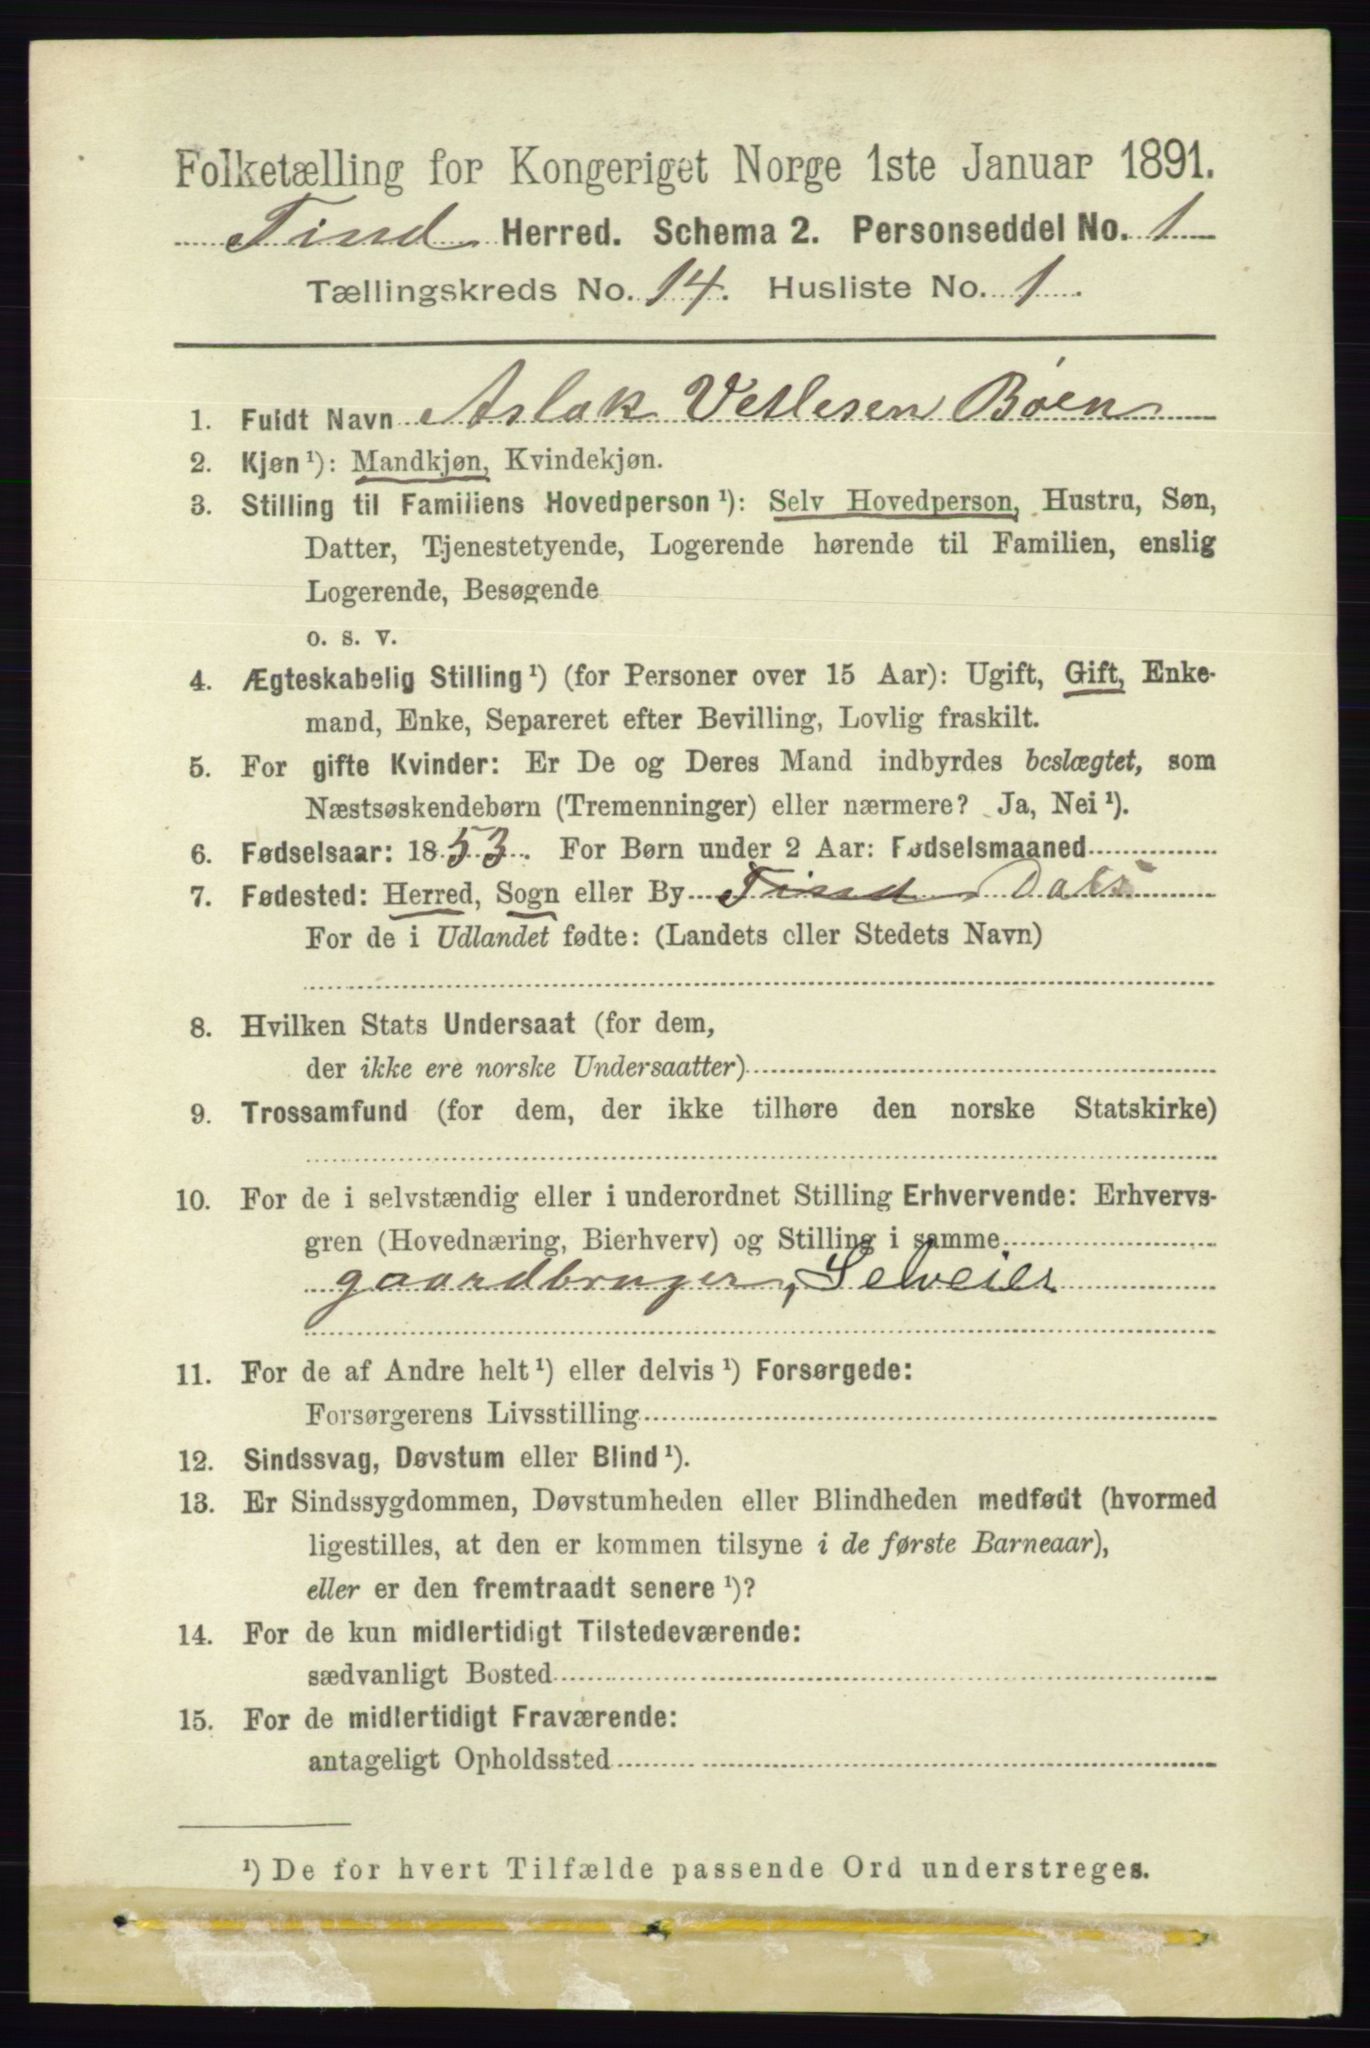 Folketælling for Kongeriget Norge 1ste Januar 1891.
Tind Herred. Schema 2. Personseddel No. 1
Tællingskreds No. 14. Husliste No. 1.
1. Fuldt Navn Aslak Vetlesen Bøen
2. Kjøn ¹): Mandkjøn, Kvindekjøn.
3. Stilling til Familiens Hovedperson ¹): Selv Hovedperson, Hustru, Søn,
Datter, Tjenestetyende, Logerende hørende til Familien, enslig
Logerende, Besøgende
o. s. v.
4. Ægteskabelig Stilling ¹) (for Personer over 15 Aar): Ugift, Gift, Enke-
mand, Enke, Separeret efter Bevilling, Lovlig fraskilt.
5. For gifte Kvinder: Er De og Deres Mand indbyrdes beslægtet, som
Næstsøskendebørn (Tremenninger) eller nærmere? Ja, Nei ¹).
6. Fødselsaar: 1853. For Børn under 2 Aar: Fødselsmaaned
7. Fødested: Herred, Sogn eller By Tind Dals
For de i Udlandet fødte: (Landets eller Stedets Navn)
8. Hvilken Stats Undersaat (for dem,
der ikke ere norske Undersaatter)
9. Trossamfund (for dem, der ikke tilhøre den norske Statskirke)
10. For de i selvstændig eller i underordnet Stilling Erhvervende: Erhvervs-
gren (Hovednæring, Bierhverv) og Stilling i samme
gaardbruger, Selveier
11. For de af Andre helt ¹) eller delvis ¹) Forsørgede:
Forsørgerens Livsstilling
12. Sindssvag, Døvstum eller Blind ¹).
13. Er Sindssygdommen, Døvstumheden eller Blindheden medfødt (hvormed
ligestilles, at den er kommen tilsyne i de første Barneaar),
eller er den fremtraadt senere ¹)?
14. For de kun midlertidigt Tilstedeværende:
sædvanligt Bosted
15. For de midlertidigt Fraværende:
antageligt Opholdssted
¹) De for hvert Tilfælde passende Ord understreges.